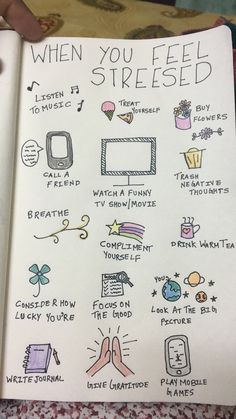 WHEN YOU FEEL
STREESED
LISTEN
TO MUSIC
TREAT
YOURSELF
BUY
FLOWERS
CALL A
FRIEND
WATCH A FUNNY
TV SHOW/MOVIE
TRASH
NEGATIVE
THOUGHTS
BREATHE
COMPLIMENT
YOURSELF
DRINK WARM TEA
CONSIDER HOW
LUCKY YOU'RE
FOCUS ON
THE GOOD
YOU
LOOK AT THE BIG
PICTURE
WRITE JOURNAL
GIVE GRATITUDE
PLAY MOBILE
GAMES